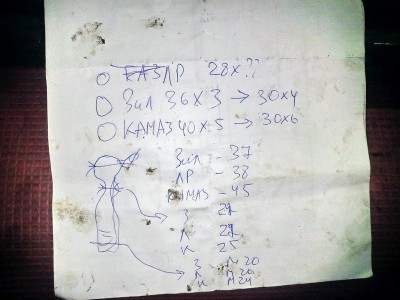 ГАЗЛР 28х??
Зил 36 х 3 → 30х4
КАМАЗ 40 х 5 → 30х6
Зил - 37
ЛР - 38
КАМАЗ - 45
З 21
Л 21
К 25
З М 20
Л М 20
К М 24